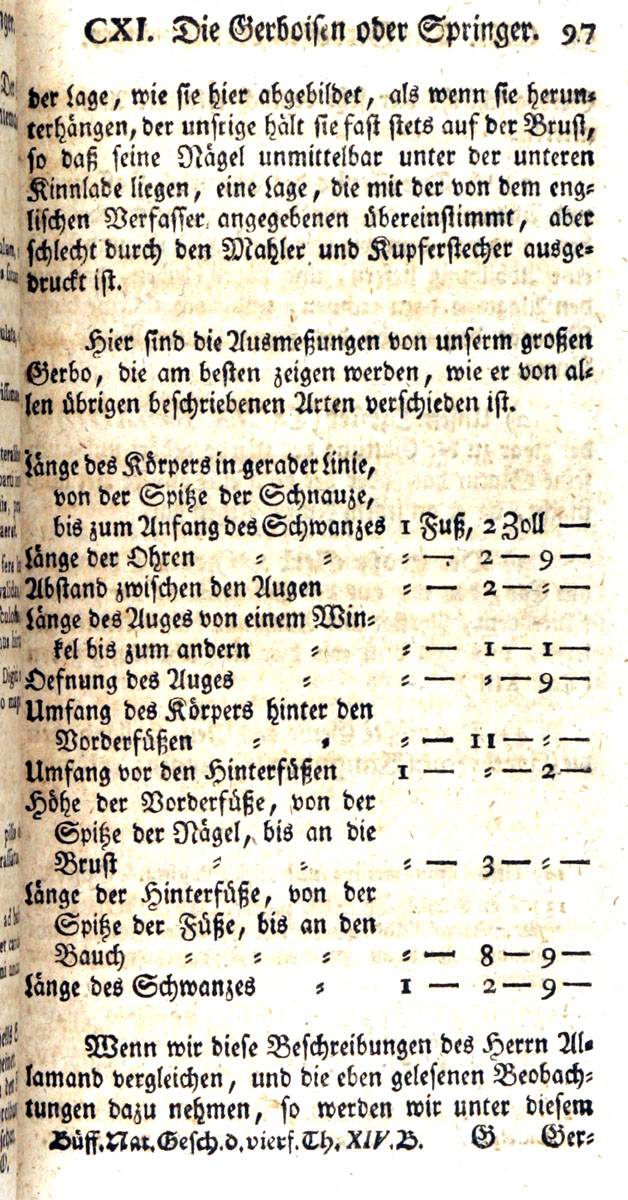 CXI. Die Gerboisen oder Springer. 97
der Lage, wie sie hier abgebildet, als wenn sie herun-
terhängen, der unsrige hält sie fast stets auf der Brust,
so daß seine Nägel unmittelbar unter der unteren
Kinnlade liegen, eine Lage, die mit der von dem eng-
lischen Verfasser angegebenen übereinstimmt, aber
schlecht durch den Mahler und Kupferstecher ausge-
druckt ist.
Hier sind die Ausmeßungen von unserm großen
Gerbo, die am besten zeigen werden, wie er von al-
len übrigen beschriebenen Arten verschieden ist.
Länge des Körpers in gerader Linie,
von der Spitze der Schnauze,
bis zum Anfang des Schwanzes 1 Fuß, 2 Zoll —
Länge der Ohren = = = — 2 — 9 —
Abstand zwischen den Augen = — 2 — = —
Länge des Auges von einem Win-
kel bis zum andern = = — 1 — 1 —
Oefnung des Auges = = — = — 9 —
Umfang des Körpers hinter den
Vorderfüßen = = = — 11 — = —
Umfang vor den Hinterfüßen 1 — = — 2 —
Höhe der Vorderfüße, von der
Spitze der Nägel, bis an die
Brust = = = — 3 — = —
Länge der Hinterfüße, von der
Spitze der Füße, bis an den
Bauch = = = = — 8 — 9 —
Länge des Schwanzes = 1 — 2 — 9 —
Wenn wir diese Beschreibungen des Herrn Al-
lamand vergleichen, und die eben gelesenen Beobach-
tungen dazu nehmen, so werden wir unter diesem
Büff. Nat. Gesch. d. vierf. Th. XIV. B. G Ger-